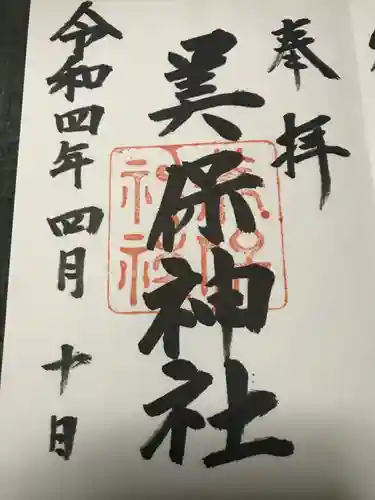 奉拝
美保神社
令和四年四月十日
美保神社